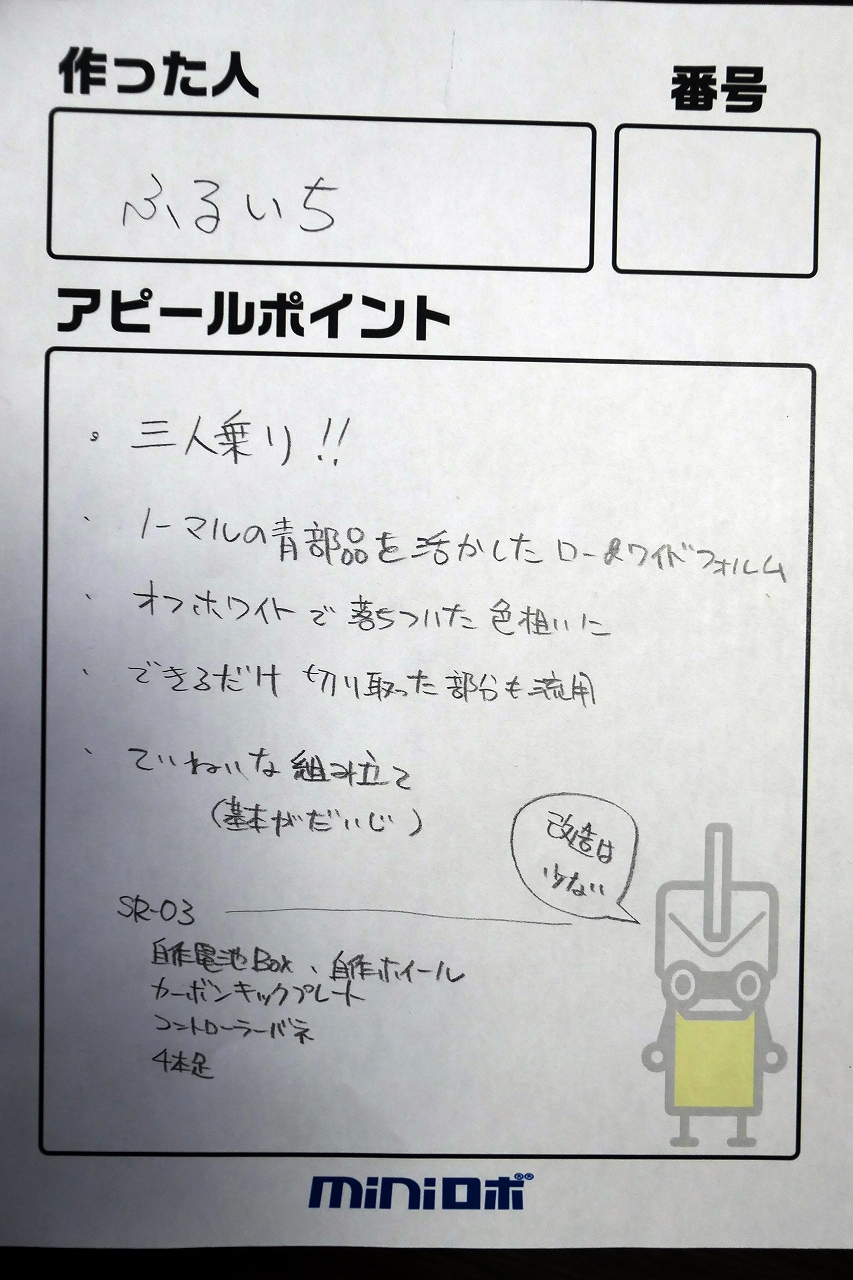 作った人
番号
ふるいち
アピールポイント
・ 三人乗り!!
・ ノーマルの青部品を活かした ロー&ワイドフォルム
・ オフホワイトで落ちついた色相いに
・ できるだけ 切り取った部分も流用
・ ていねいな組み立て
(基本がだいじ)
改造は
少ない
SR-03
自作電池Box、自作ホイール
カーボンキックプレート
コントローラーバネ
4本足
miniロボ